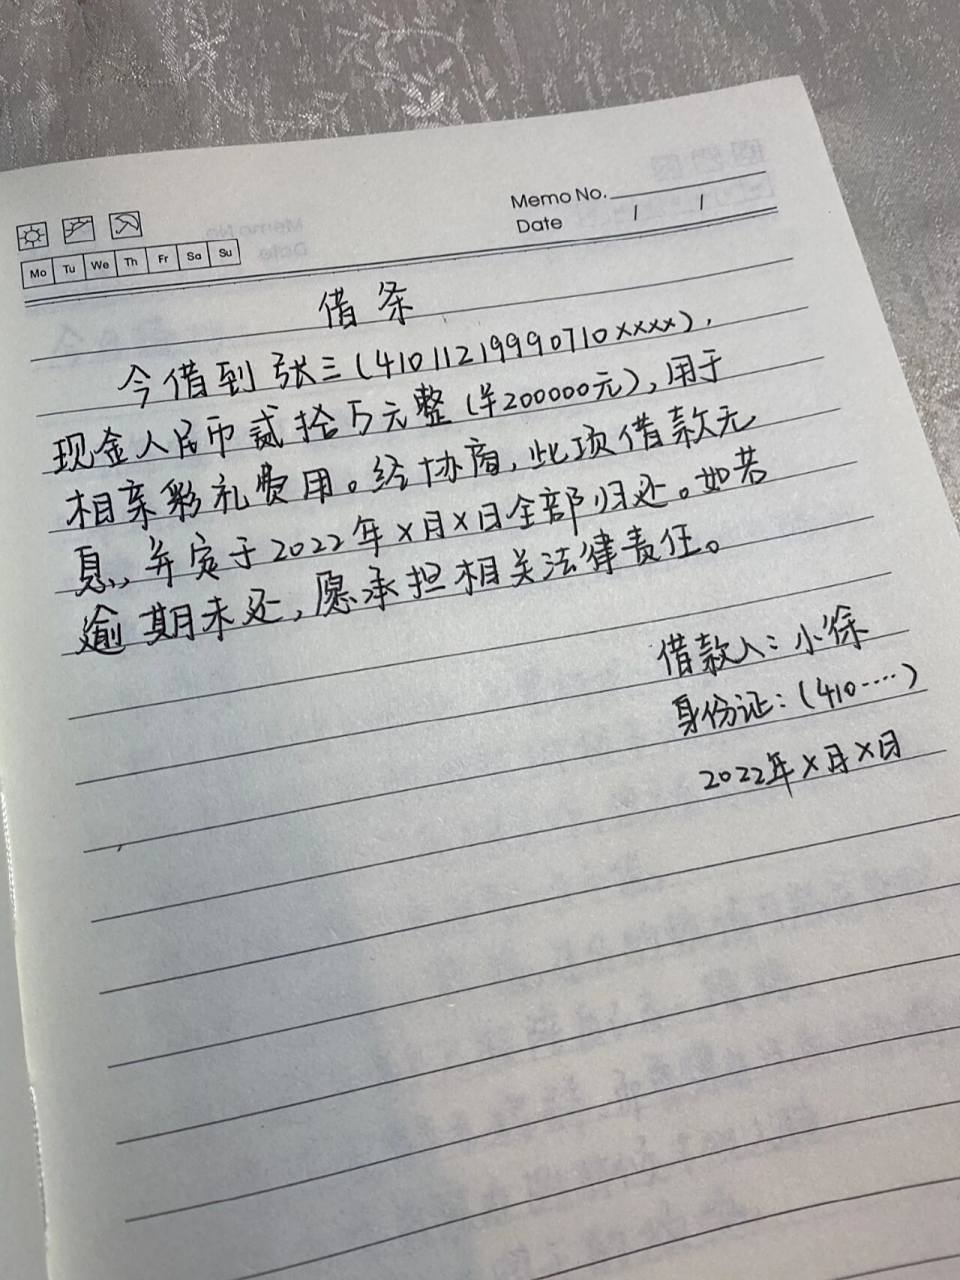 Memo No.
Date / /
Mo Tu We Th Fr Sa Su
借条
今借到张三(41011219990710xxxx),
现金人民币贰拾万元整(¥200000元),用于
相亲彩礼费用。经协商,此项借款无
息,并定于2022年X月X日全部归还。如若
逾期未还,愿承担相关法律责任。
借款人:小徐
身份证:(410····)
2022年X月X日